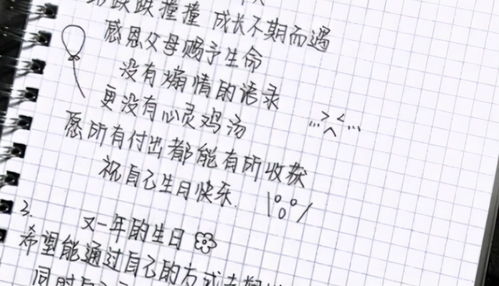 跌跌撞撞 成长不期而遇
感恩父母赐予生命
没有煽情的语录
更没有心灵鸡汤
愿所有付出都能有所收获
祝自己生日快乐.
3.
又一年的生日
希望能通过自己的方式去
同时